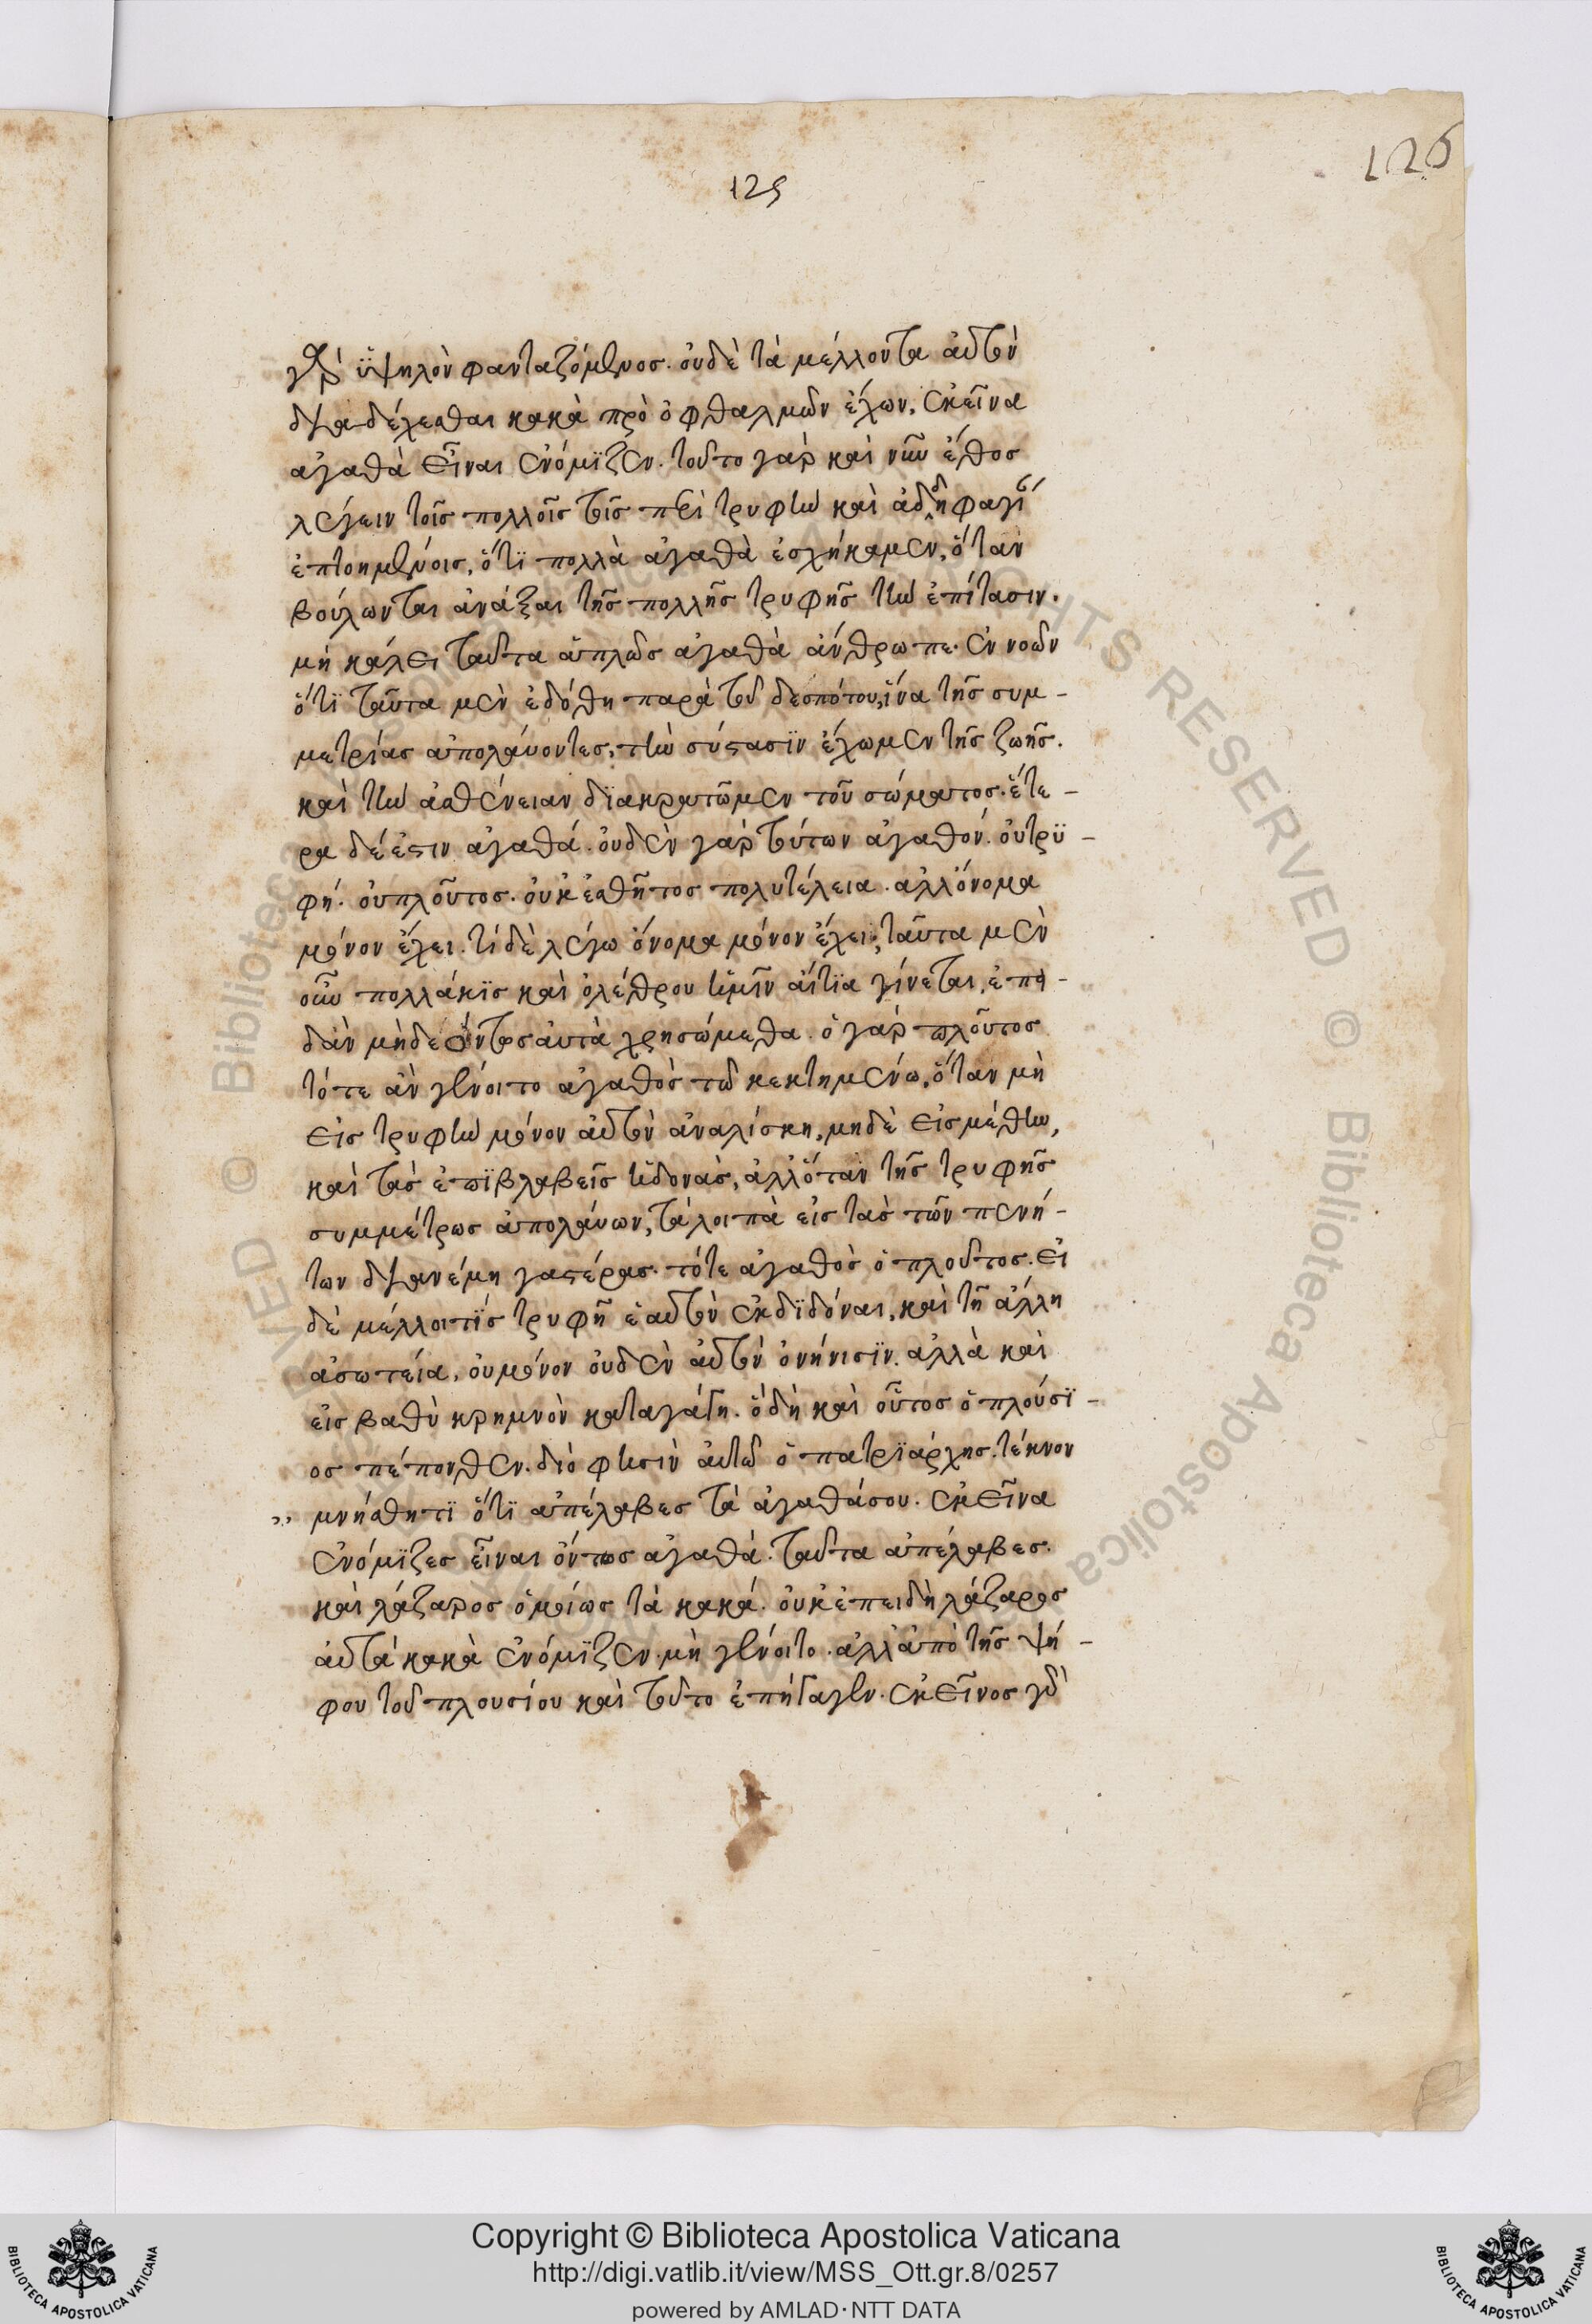 126
125
γὰρ ὑψηλὸν φανταζόμενος. οὐδὲ τὰ μέλλοντα αὐτὸν
διαδέχεσθαι κακὰ πρὸ ὀφθαλμῶν ἔχων, ἐκεῖνα
ἀγαθὰ εἶναι ἐνόμιζεν. τοῦτο γὰρ καὶ νῦν ἔθος
λέγειν τοῖς πολλοῖς τοῖς περὶ τρυφὴν καὶ ἀδδηφαγί
ἐπτοημένοις, ὅτι πολλὰ ἀγαθὰ ἐσχήκαμεν, ὅταν
βούλωνται ἀνάξαι τῆς πολλῆς τρυφῆς τὴν ἐπίτασιν.
μὴ κάλει ταῦτα ἁπλῶς ἀγαθὰ ἄνθρωπε. ἐννοῶν
ὅτι ταῦτα μὲν ἐδόθη παρὰ τοῦ δεσπότου, ἵνα τῆς συμ-
μετρίας ἀπολάυοντες, τὴν σύστασιν ἔχωμεν τῆς ζωῆς.
καὶ τὴν ἀσθένειαν διακρατῶμεν τοῦ σώματος. ἕτε-
ρα δέ ἐστιν ἀγαθά. οὐδὲν γὰρ τούτων ἀγαθόν. οὐ τρυ-
φή. οὐ πλοῦτος. οὐκ ἐσθῆτος πολυτέλεια. ἀλλ' ὄνομα
μόνον ἔχει. τί δὲ λέγω ὄνομα μόνον ἔχει; ταῦτα μὲν
οὖν πολλάκις καὶ ὀλέθρου ἡμῖν αἴτια γίνεται, ἐπει-
δὰν μὴ δεόντως αὐτὰ χρησώμεθα. ὁ γὰρ πλοῦτος
τότε ἂν γένοιτο ἀγαθὸς τῶ κεκτημένω, ὅταν μὴ
εἰς τρυφὴν μόνον αὐτὸν ἀναλίσκη, μηδὲ εἰς μέθην,
καὶ τὰς ἐπιβλαβεῖς ἡδονὰς, ἀλλ' ὅταν τῆς τρυφῆς
συμμέτρως ἀπολάυων, τὰ λοιπὰ εἰς τὰς τῶν πενή-
των διανέμη γαστέρας. τότε ἀγαθὸς ὁ πλοῦτος. εἰ
δὲ μέλλοι τὶς τρυφῆ ἑαυτὸν ἐκδιδόναι, καὶ τῆ ἄλλη
ἀσωτεία, οὐ μόνον οὐδὲν αὐτὸν ὀνήνισιν. ἀλλὰ καὶ
εἰς βαθὺ κρημνὸν καταγάγη. ὃ δὴ καὶ οὗτος ὁ πλούσι-
ος πέπονθεν. διὸ φησὶν αὐτῶ ὁ πατριάρχης. τέκνον
,, μνήσθητι ὅτι ἀπέλαβες τὰ ἀγαθά σου. ἐκεῖνα
ἐνόμιζες εἶναι ὄντως ἀγαθά. ταῦτα ἀπέλαβες.
καὶ λάζαρος ὁμοίως τὰ κακά. οὐκ ἐπειδὴ λάζαρος
αὐτὰ κακὰ ἐνόμιζεν. μὴ γένοιτο. ἀλλ' ἀπὸ τῆς ψή-
φου τοῦ πλουσίου καὶ τοῦτο ἐπήγαγεν. ἐκεῖνος γὰρ
Copyright © Biblioteca Apostolica Vaticana
http://digi.vatlib.it/view/MSS_Ott.gr.8/0257
powered by AMLAD·NTT DATA